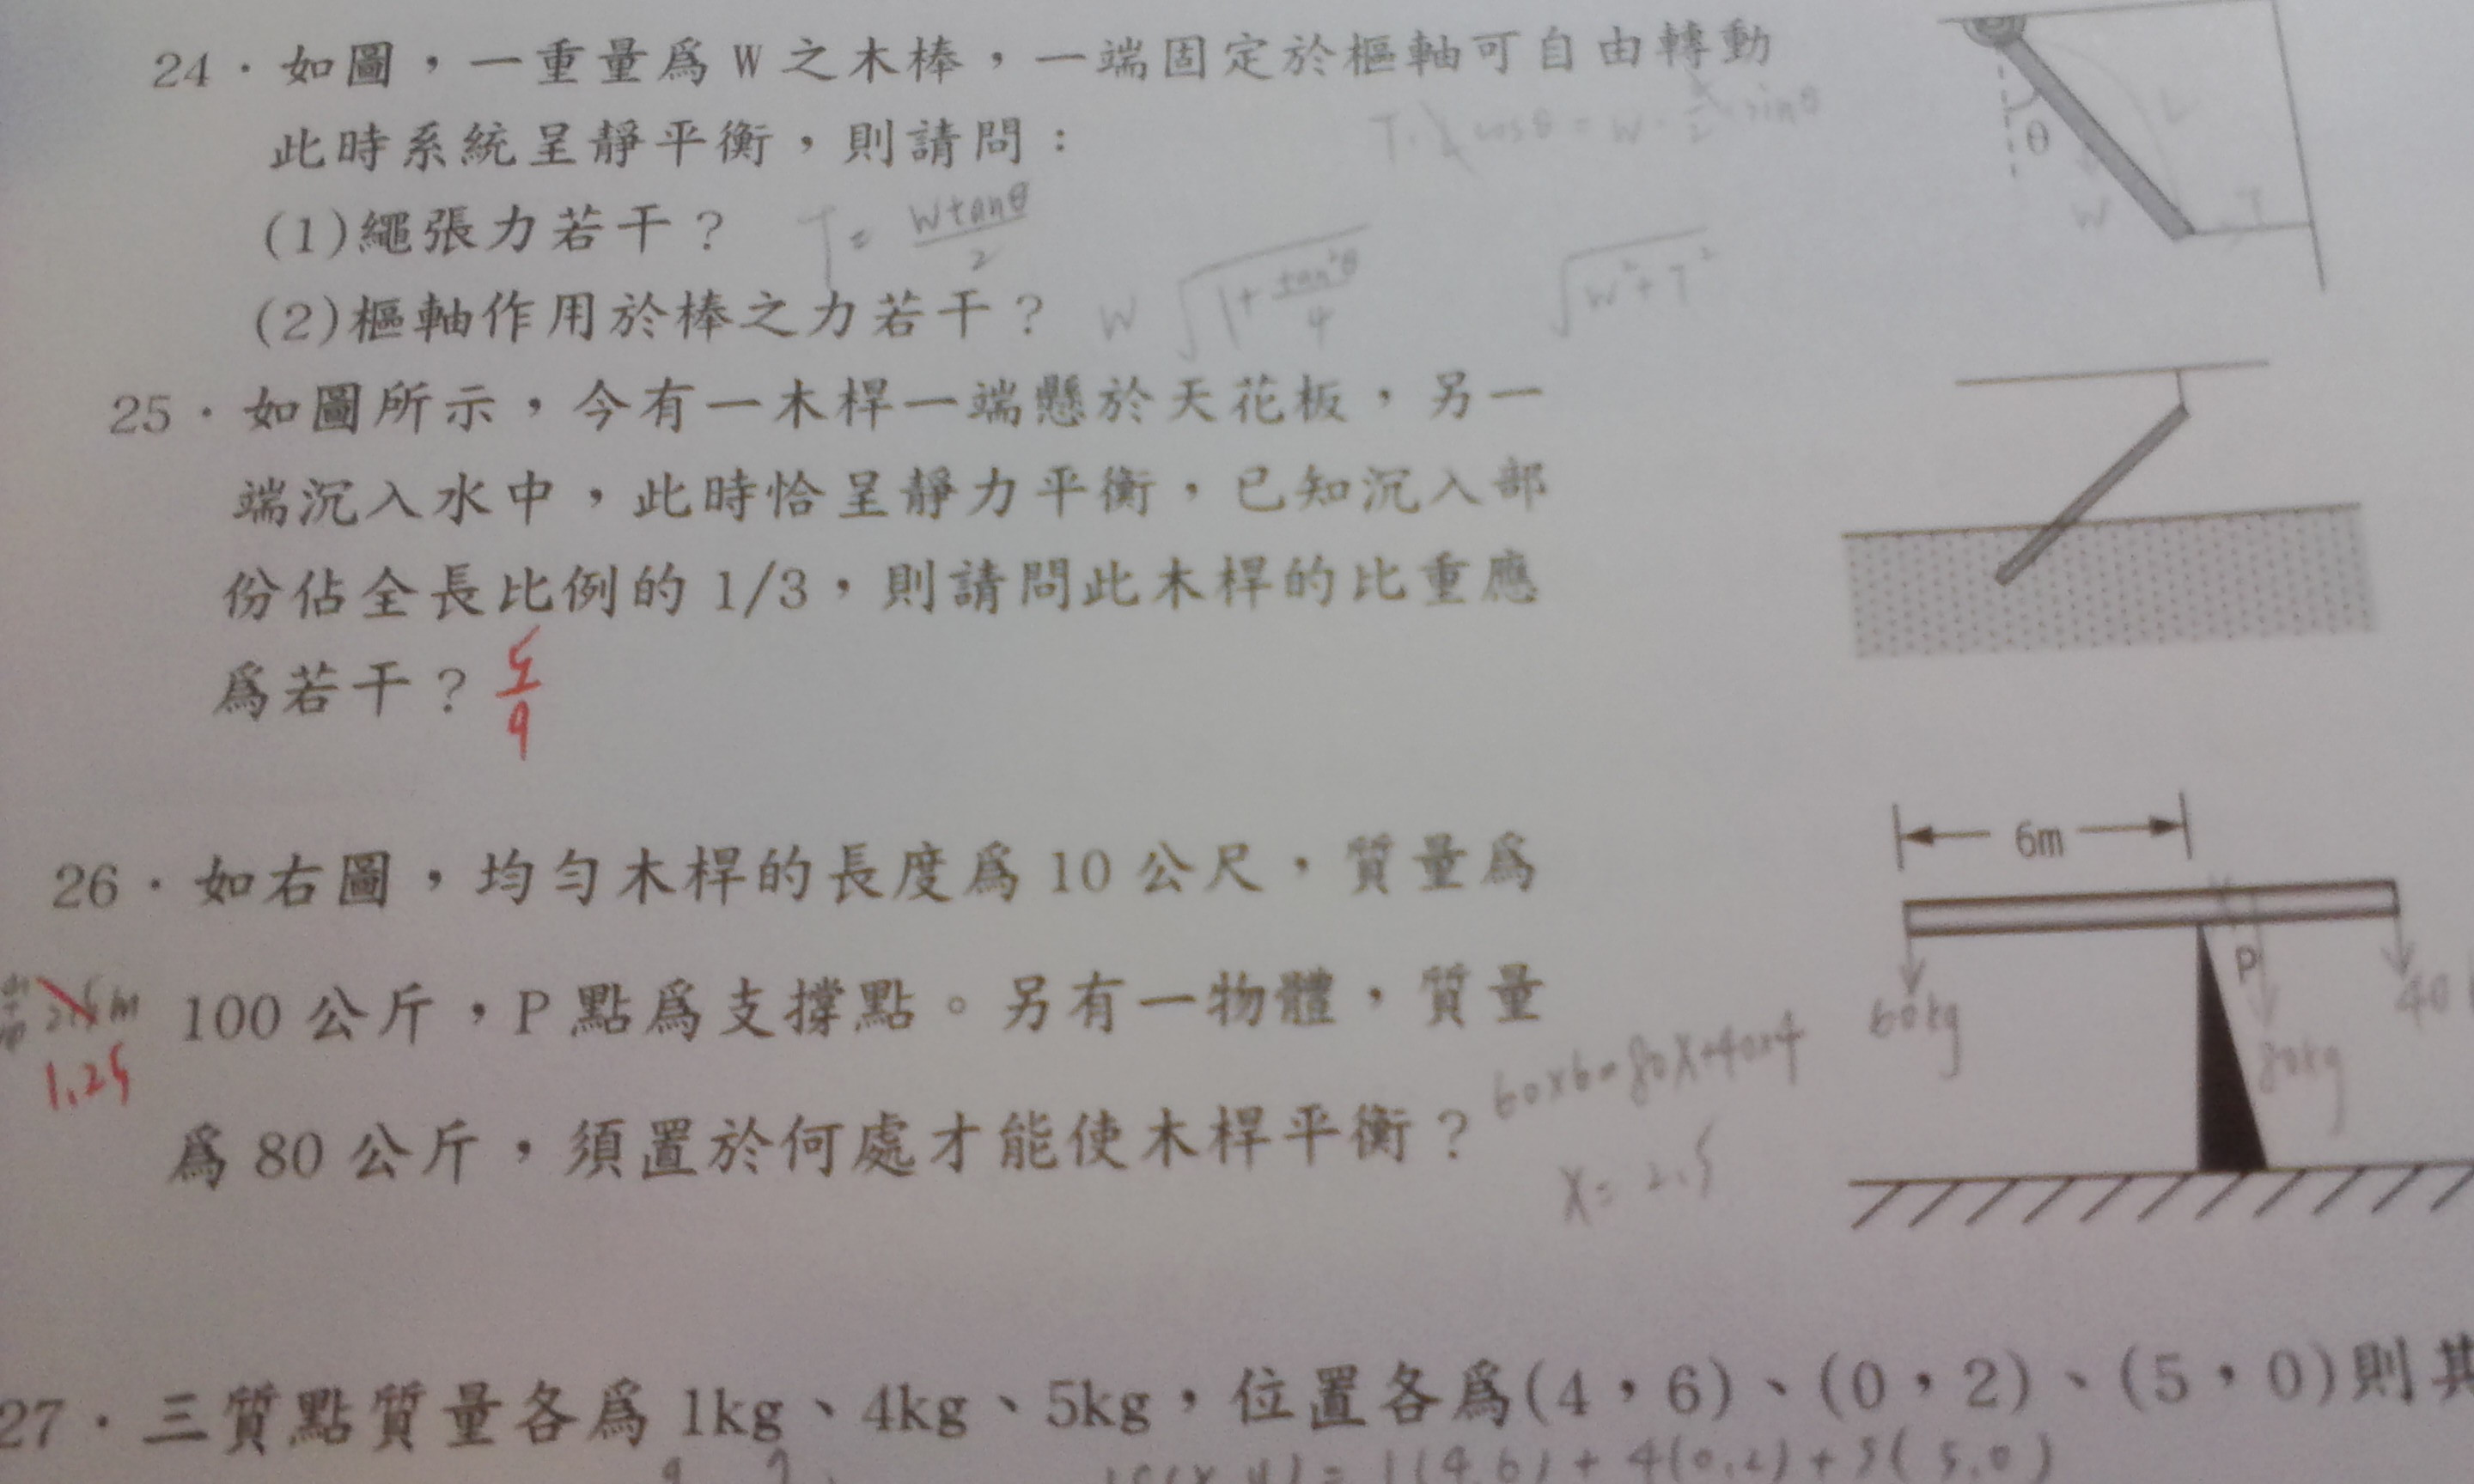 24．如圖，一重量爲 W 之木棒，一端固定於樞軸可自由轉動
此時系統呈靜平衡，則請問：
T· cosθ = W· sinθ
(1)繩張力若干？ T = Wtanθ/2
(2)樞軸作用於棒之力若干？ W√(1+tan²θ/4) √(W²+T²)
θ
L
W
T
25．如圖所示，今有一木桿一端懸於天花板，另一
端沉入水中，此時恰呈靜力平衡，已知沉入部
份佔全長比例的 1/3，則請問此木桿的比重應
爲若干？ 5/9
26．如右圖，均勻木桿的長度爲 10 公尺，質量爲
100 公斤，P 點爲支撐點。另有一物體，質量
爲 80 公斤，須置於何處才能使木桿平衡？
m
1.25
60×6=80X+40×4
X= 2.5
6m
P
60kg
80kg
40
27．三質點質量各爲 1kg、4kg、5kg，位置各爲(4，6)、(0，2)、(5，0)則其
= 1(4,6) + 4(0,2) + 5(5,0)